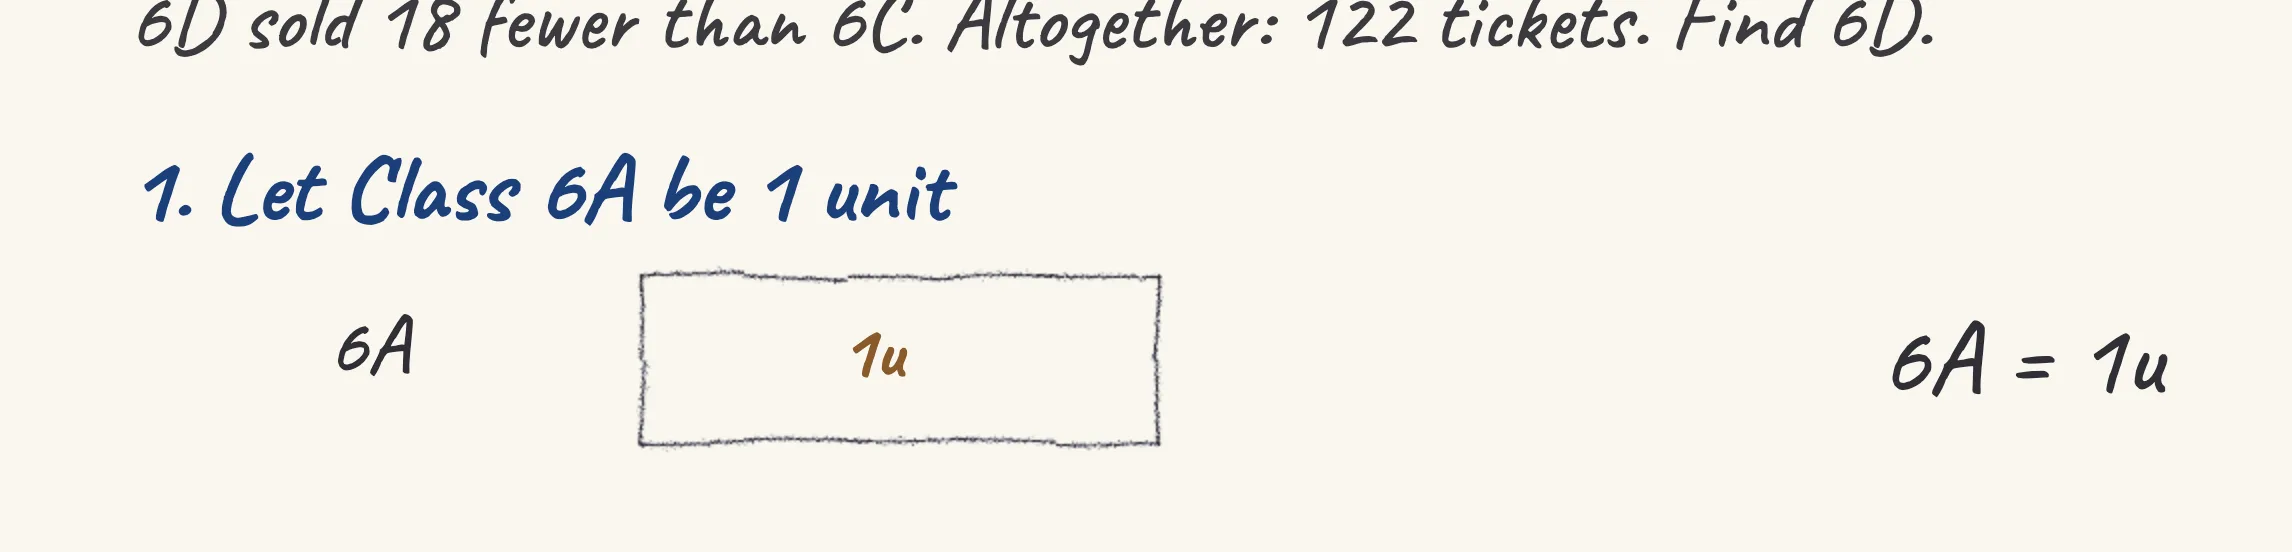 6D sold 18 fewer than 6C. Altogether: 122 tickets. Find 6D.
1. Let Class 6A be 1 unit
6A 1u 6A = 1u